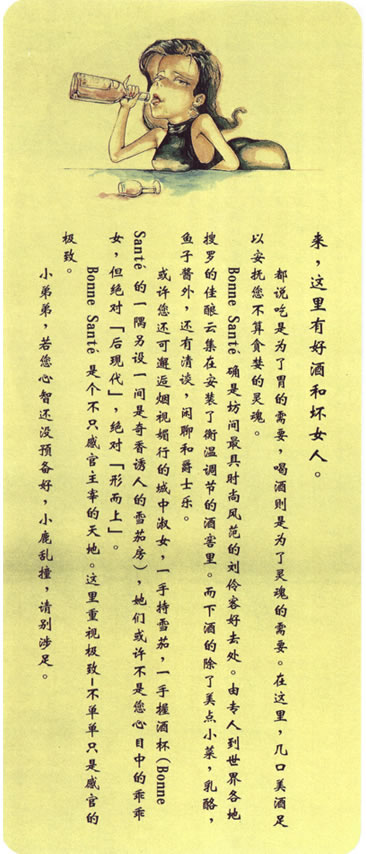 来，这里有好酒和坏女人。
都说吃是为了胃的需要，喝酒则是为了灵魂的需要。在这里，几口美酒足
以安抚您不算贪婪的灵魂。
Bonne Santé 确是坊间最具时尚风范的刘伶客好去处。由专人到世界各地
搜罗的佳酿云集在安装了衡温调节的酒窖里。而下酒的除了美点小菜，乳酪，
鱼子酱外，还有清谈，闲聊和爵士乐。
或许您还可邂逅烟视媚行的城中淑女，一手持雪茄，一手握酒杯（Bonne
Santé 的一隅另设一间是奇香诱人的雪茄房），她们或许不是您心目中的乖乖
女，但绝对「后现代」，绝对「形而上」。
Bonne Santé 是个不只感官主宰的天地。这里重视极致–不单单只是感官的
极致。
小弟弟，若您心智还没预备好，小鹿乱撞，请别涉足。